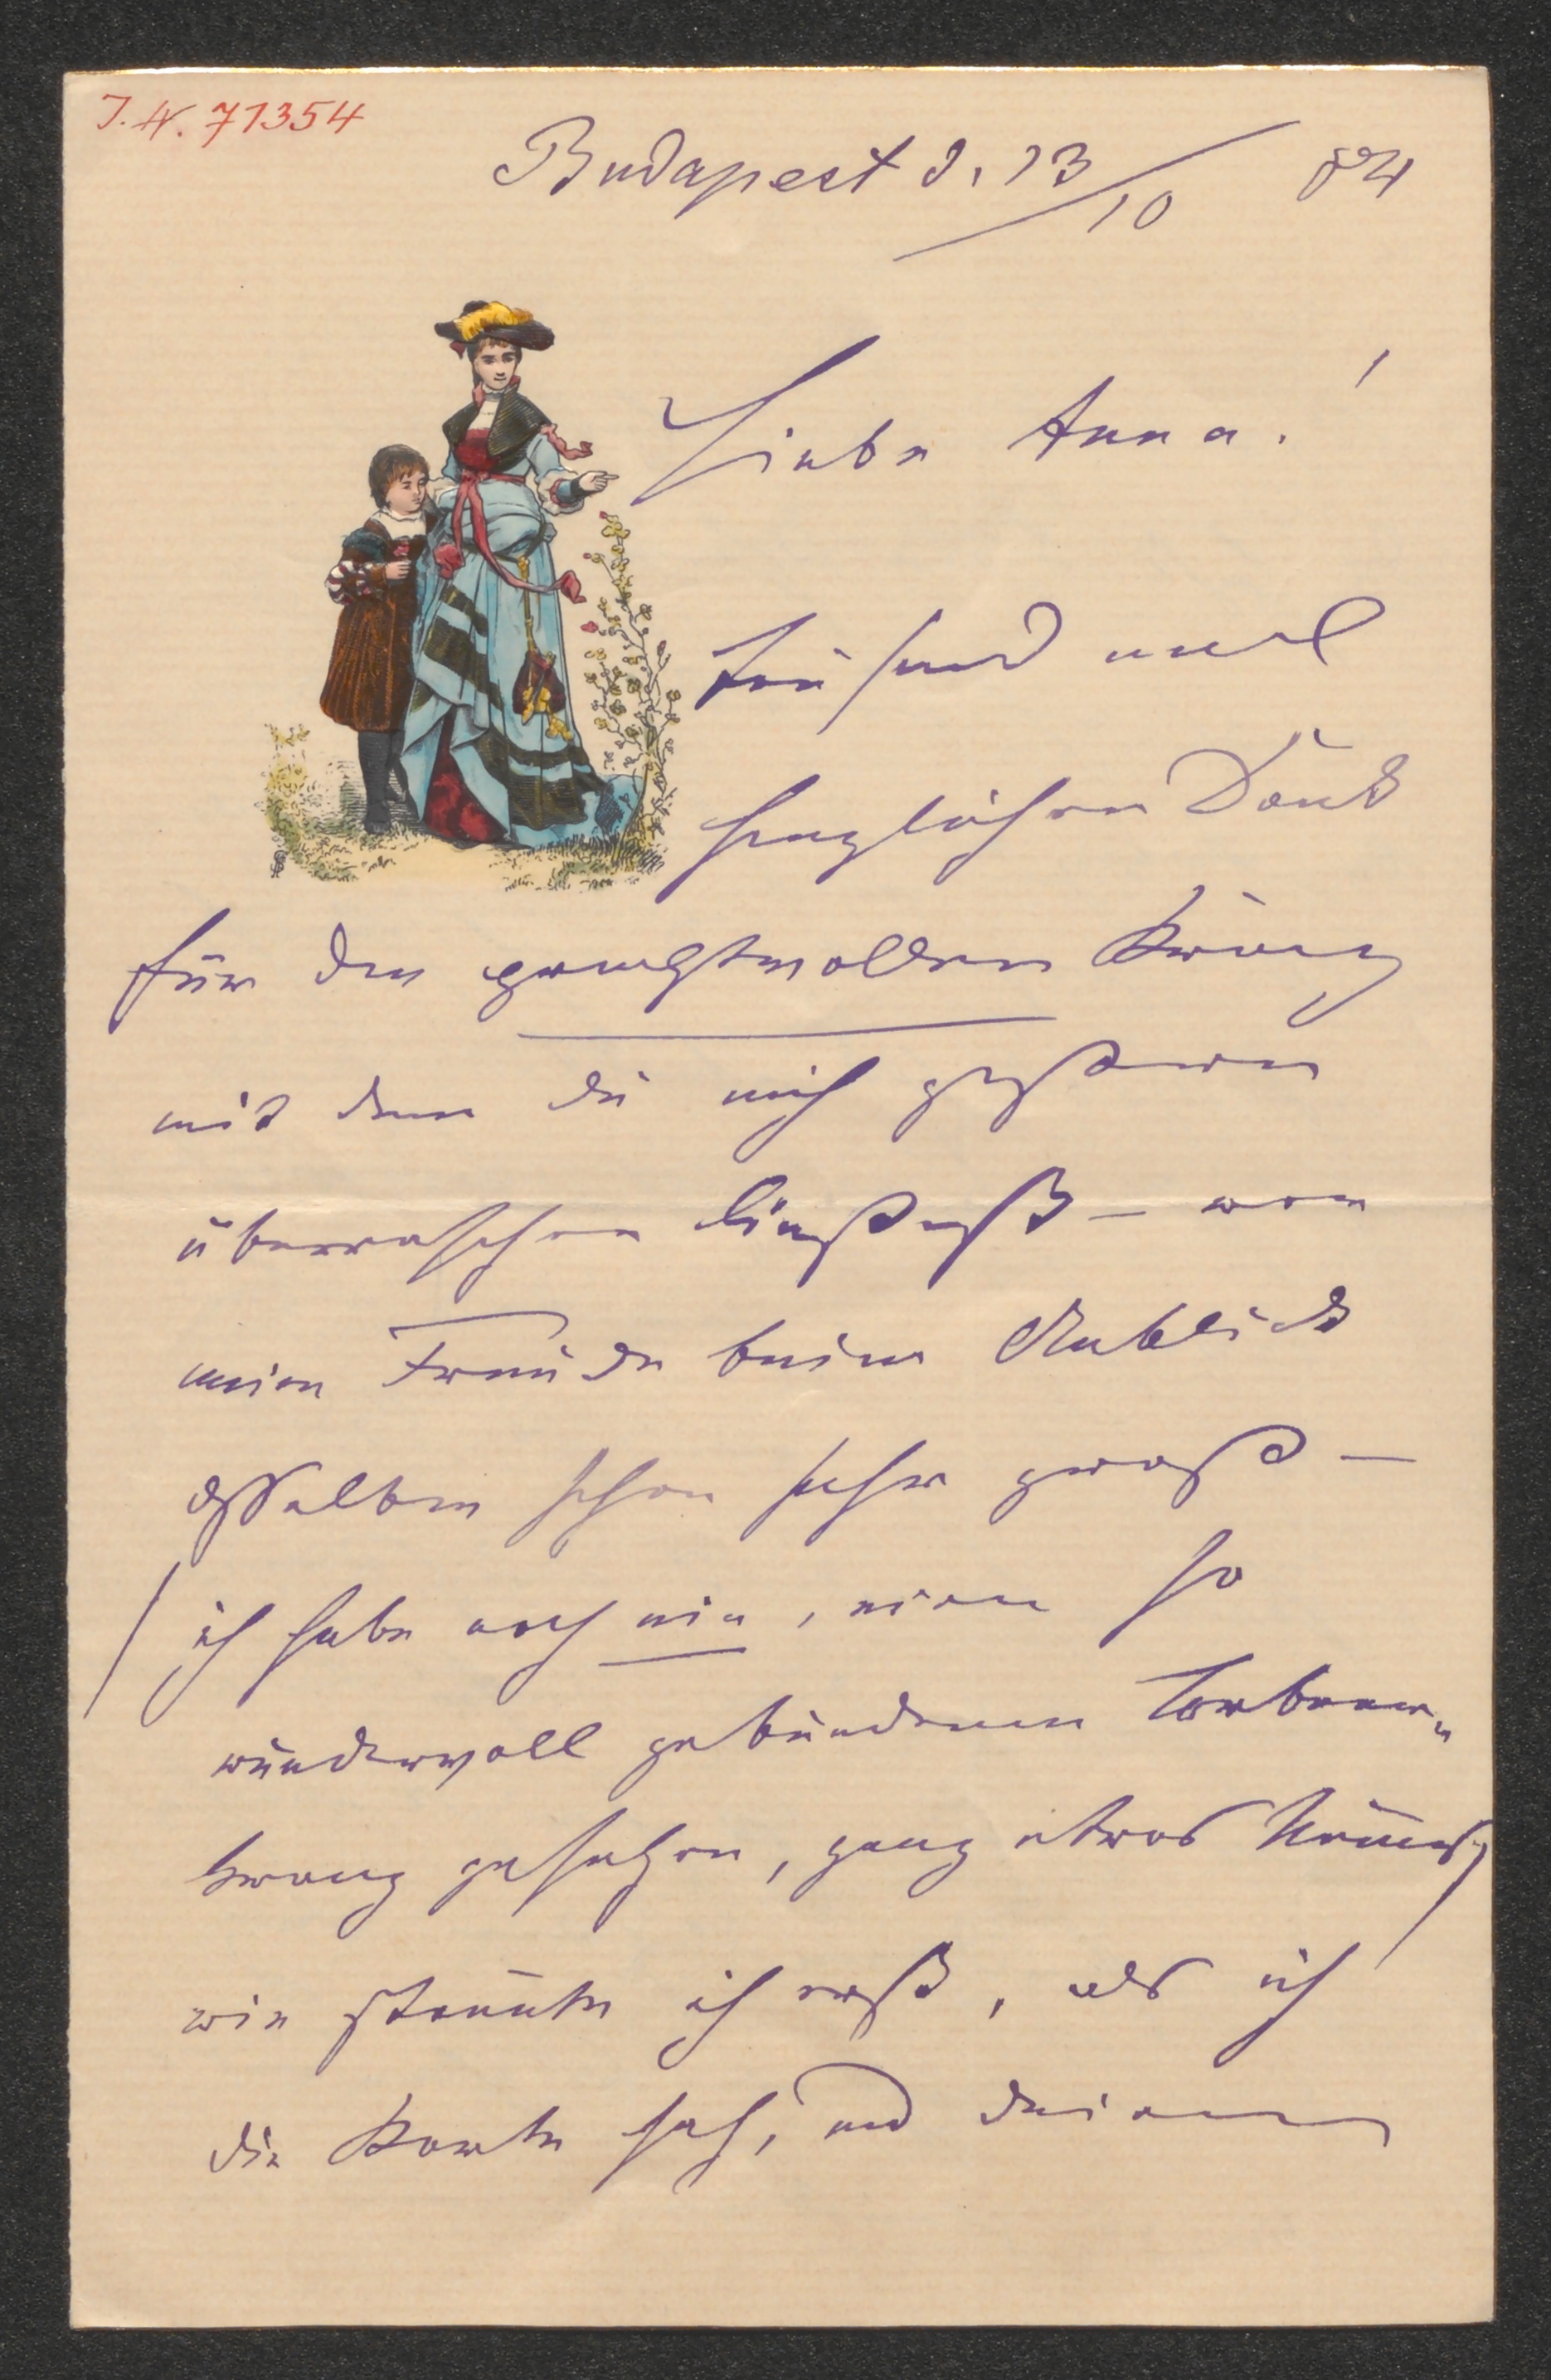 I. N. 71354
Budapest d. 13/10 84
Liebe Anna!
tausend mal
herzlichen Dank
für den prachtvollen Kranz
mit dem du mich gestern
überraschen ließest – war
meine Freude beim Anblick
desselben schon sehr groß –
/ich habe noch nie, einen so
wundervoll gebundenen Lorbeer„
kranz gesehen, ganz etwas Neues/
wie staunte ich erst, als ich
die Karte sah, und deinen